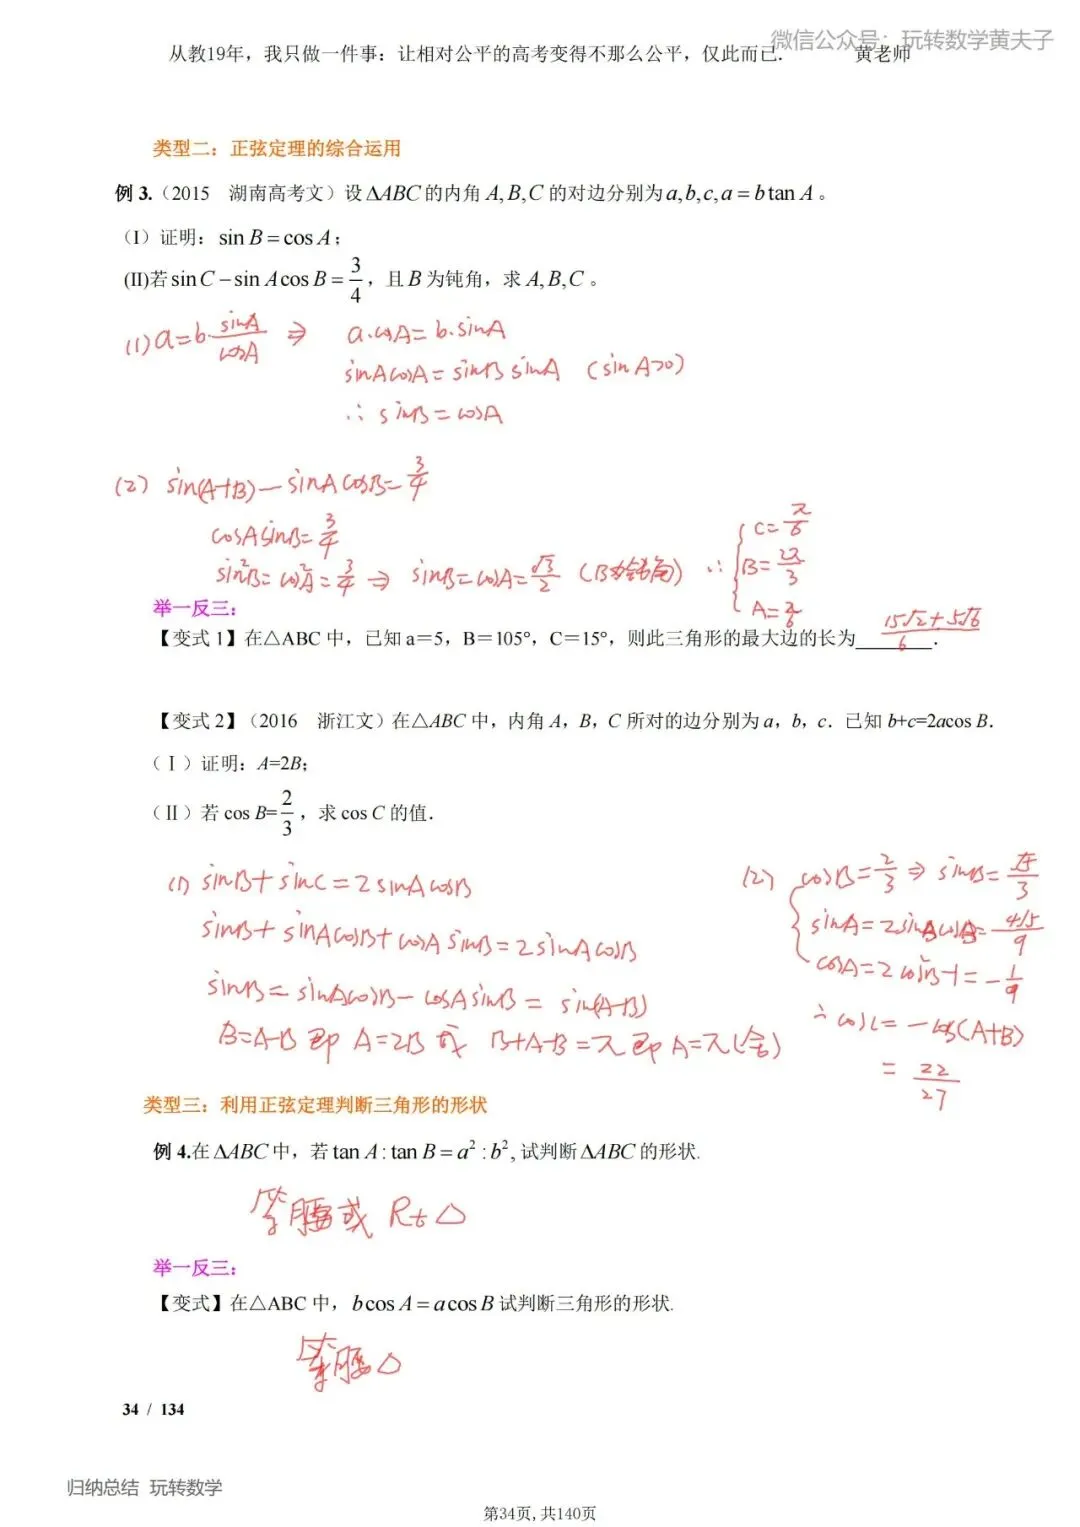 微信公众号：玩转数学黄夫子
从教19年，我只做一件事：让相对公平的高考变得不那么公平，仅此而已. 黄老师
类型二：正弦定理的综合运用
例 3.（2015 湖南高考文）设 ΔABC 的内角 A,B,C 的对边分别为 a,b,c,a = b tan A 。
（I）证明：sin B = cos A；
(II)若 sin C − sin A cos B = 3/4，且 B 为钝角，求 A,B,C 。
(1) a=b·sinA/cosA ⇒ a·cosA=b·sinA
sinAcosA=sinBsinA (sinA>0)
∴ sinB=cosA
(2) sin(A+B)−sinAcosB=3/4
cosAsinB=3/4
sin²B=cos²A=3/4 ⇒ sinB=cosA=√3/2 (B为钝角) ∴ { C=π/6
B=2π/3
A=π/6
举一反三：
【变式 1】在△ABC 中，已知 a＝5，B＝105°，C＝15°，则此三角形的最大边的长为 (15√2+5√6)/6 .
【变式 2】（2016 浙江文）在△ABC 中，内角 A，B，C 所对的边分别为 a，b，c．已知 b+c=2acos B．
（Ⅰ）证明：A=2B；
（Ⅱ）若 cos B=2/3，求 cos C 的值．
(1) sinB+sinC=2sinAcosB
sinB+sinAcosB+cosAsinB=2sinAcosB
sinB=sinAcosB−cosAsinB=sin(A−B)
B=A−B 即 A=2B 或 B+A−B=π 即 A=π(舍)
(2) { cosB=2/3 ⇒ sinB=√5/3
sinA=2sinBcosB=4√5/9
cosA=2cos²B−1=−1/9
∴ cosC=−cos(A+B)
=22/27
类型三：利用正弦定理判断三角形的形状
例 4.在 ΔABC 中，若 tan A : tan B = a² : b², 试判断 ΔABC 的形状.
等腰或 Rt△
举一反三：
【变式】在△ABC 中，bcos A = acos B 试判断三角形的形状.
等腰△
34 / 134
归纳总结 玩转数学
第34页,共140页